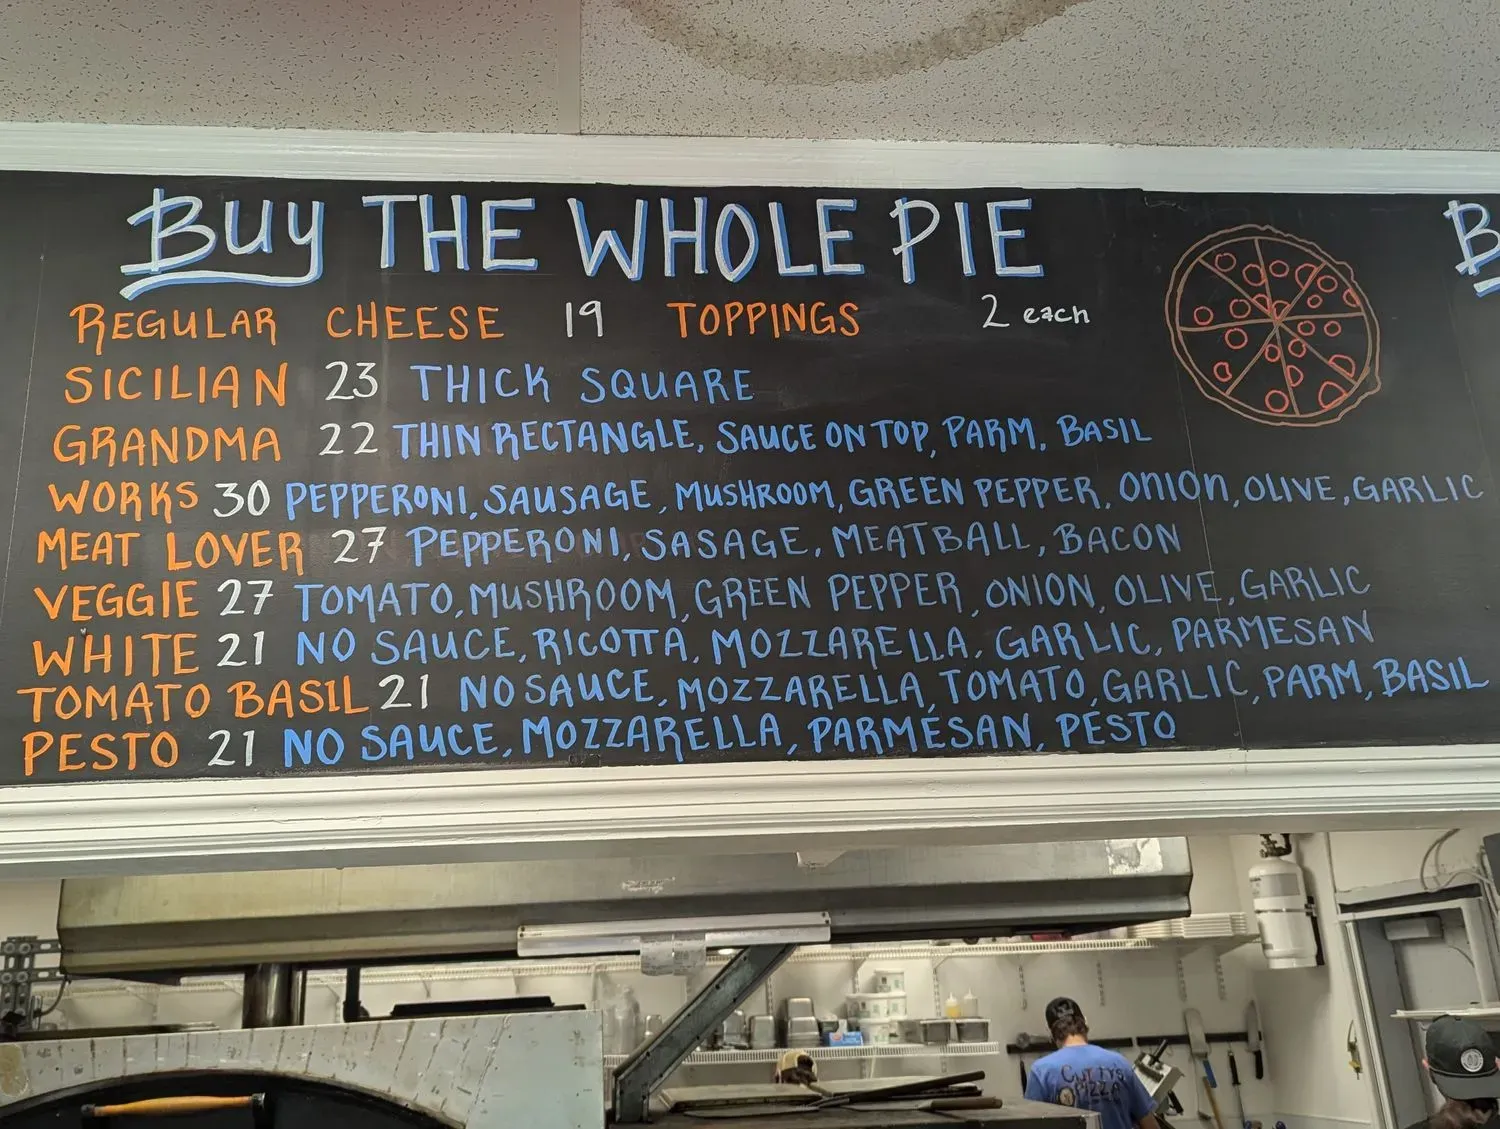 BUY THE WHOLE PIE
REGULAR CHEESE 19 TOPPINGS 2 each
SICILIAN 23 THICK SQUARE
GRANDMA 22 THIN RECTANGLE, SAUCE ON TOP, PARM, BASIL
WORKS 30 PEPPERONI, SAUSAGE, MUSHROOM, GREEN PEPPER, ONION, OLIVE, GARLIC
MEAT LOVER 27 PEPPERONI, SASAGE, MEATBALL, BACON
VEGGIE 27 TOMATO, MUSHROOM, GREEN PEPPER, ONION, OLIVE, GARLIC
WHITE 21 NO SAUCE, RICOTTA, MOZZARELLA, GARLIC, PARMESAN
TOMATO BASIL 21 NO SAUCE, MOZZARELLA, TOMATO, GARLIC, PARM, BASIL
PESTO 21 NO SAUCE, MOZZARELLA, PARMESAN, PESTO
PIZZA